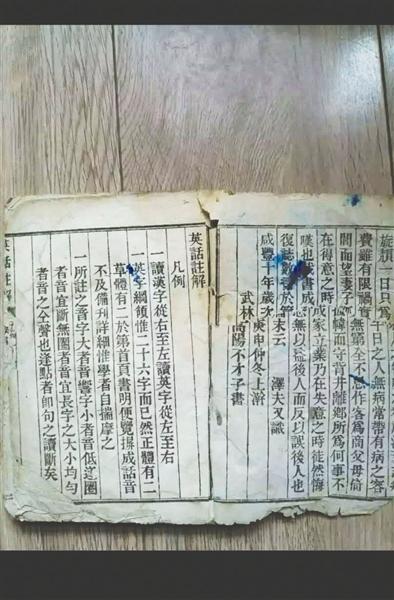 一日只爲千日之人無病常帶有病之容
費雖有限禍實無第全不作客爲商父母倚
閭而望妻子幃而守背井離鄉所爲何事不
在得意之時成家立業乃在失意之時徒然悔
嘆也茲書成無以後人而反以誤後人也
復誌數於末云 澤夫又識
咸豐十年歲次庚申仲冬上澣
武林高陽不才子書
英話註解
凡例
一讀漢字從右至左讀英字從左至右
一英字綱領惟二十六字而已然正體有二
草體有二於第首頁書明便覽成話音
不及備刋詳細惟學者自揣摩之
一所註之音字大者音響字小者音低逢圈
者音宜斷無圈者音宜長字之大小均勻
者音之仝聲也逢點者卽句之讀斷矣
英話註解